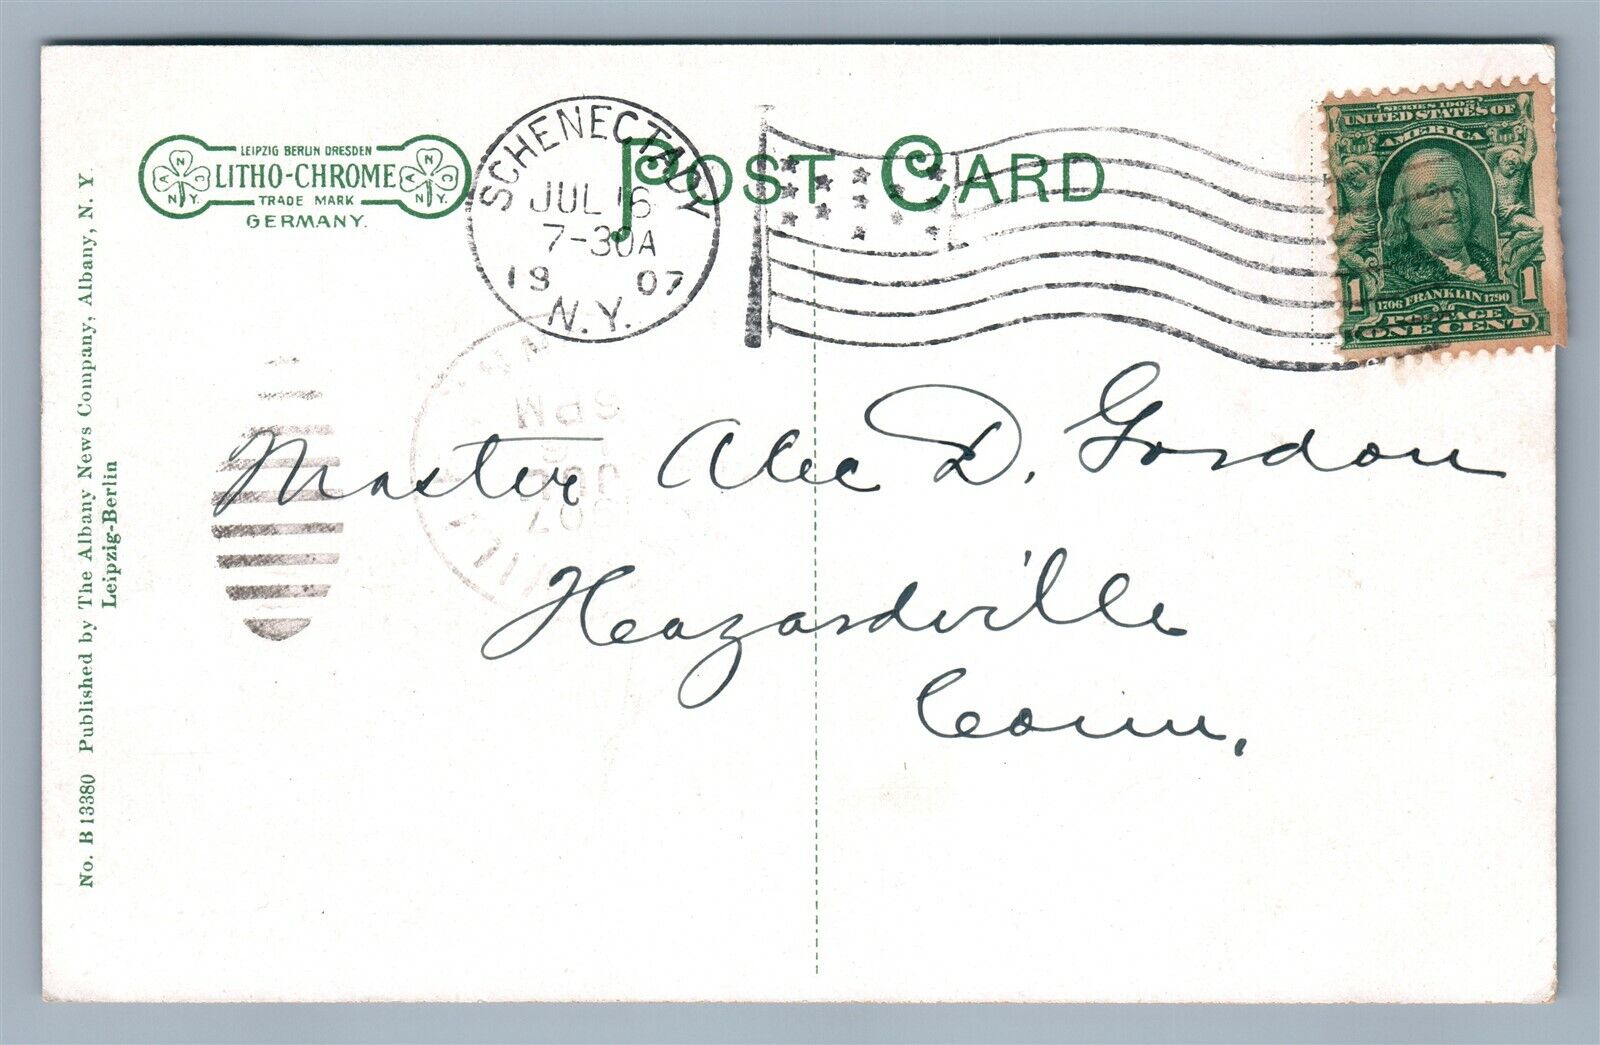 LEIPZIG BERLIN DRESDEN
LITHO-CHROME
TRADE MARK
GERMANY.
A N C N.Y.
A N C N.Y.
POST CARD
SCHENECTADY
JUL 16
7-30A
1907
N.Y.
SERIES 1902
UNITED STATES OF
AMERICA
1 1
1706 FRANKLIN 1790
POSTAGE
ONE CENT
5 PM
JUL
1907
Master Alec D. Gordon
Heazardville
Conn.
No. B 13380 Published by The Albany News Company, Albany, N. Y.
Leipzig-Berlin